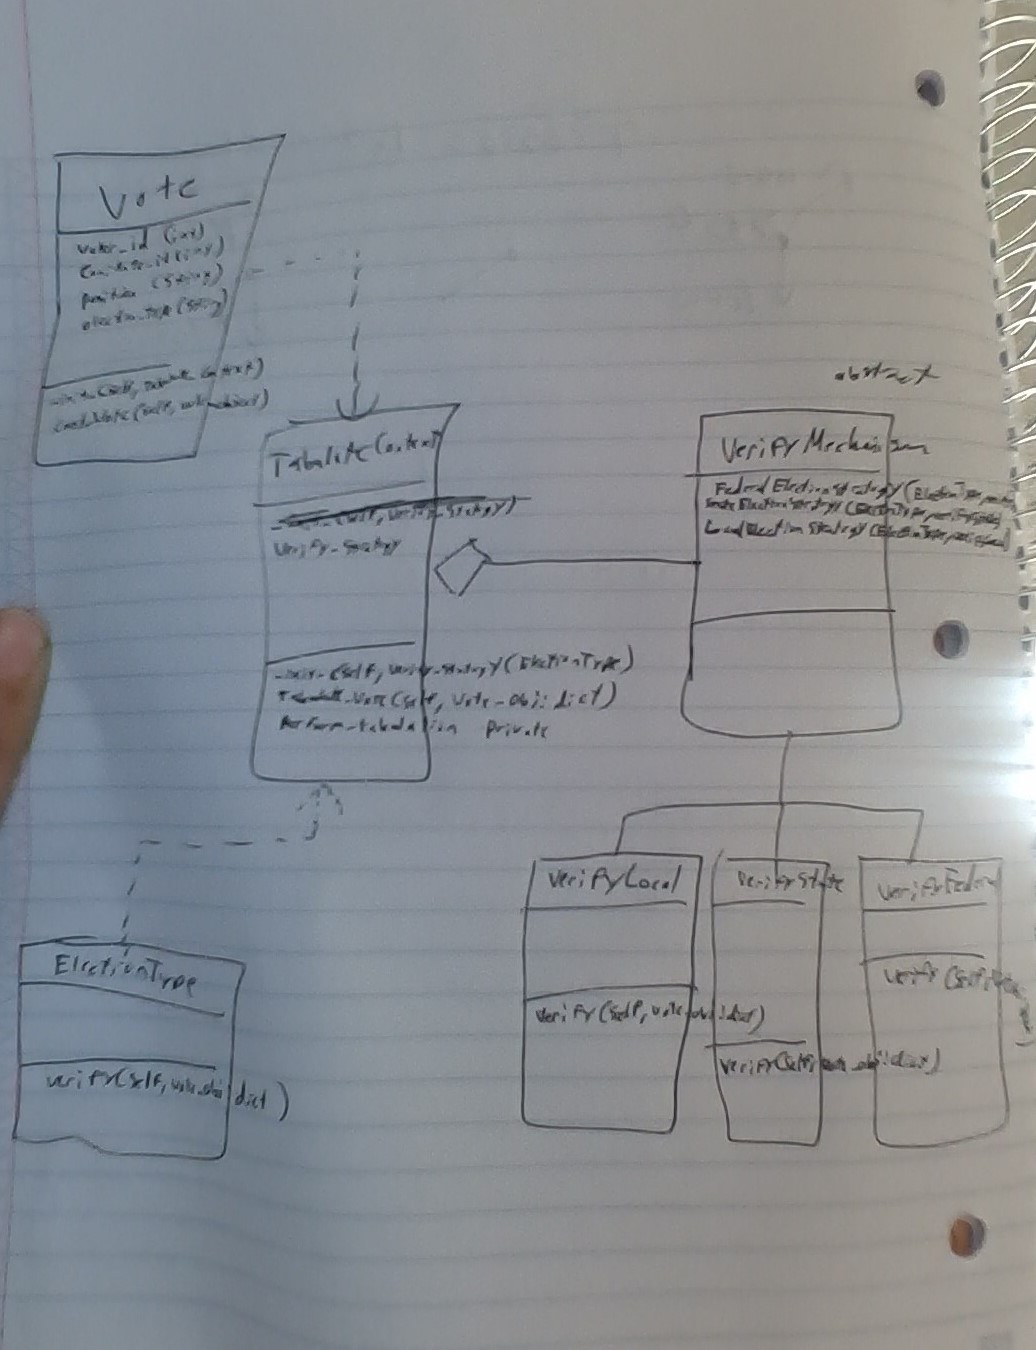 Vote
voter_id (int)
Candidate_id (int)
position (String)
election_type (String)
_init_(self, tabulate context)
cast_Vote(self, vote_object)
TabulateContext
Verify_Strategy
_init_(self, Verify_Strategy(ElectionType)
Tabulate_Vote(self, Vote_obj: dict)
Perform_tabulation private
abstract
VerifyMechanism
Federal Election Strategy (ElectionType,
State Election Strategy (ElectionType,
Local Election Strategy (ElectionType,
VerifyLocal
verify(self, vote_obj: dict)
VerifyState
verify(self, vote_obj: dict)
VerifyFederal
verify (self,
ElectionType
verify(self, vote_obj: dict)